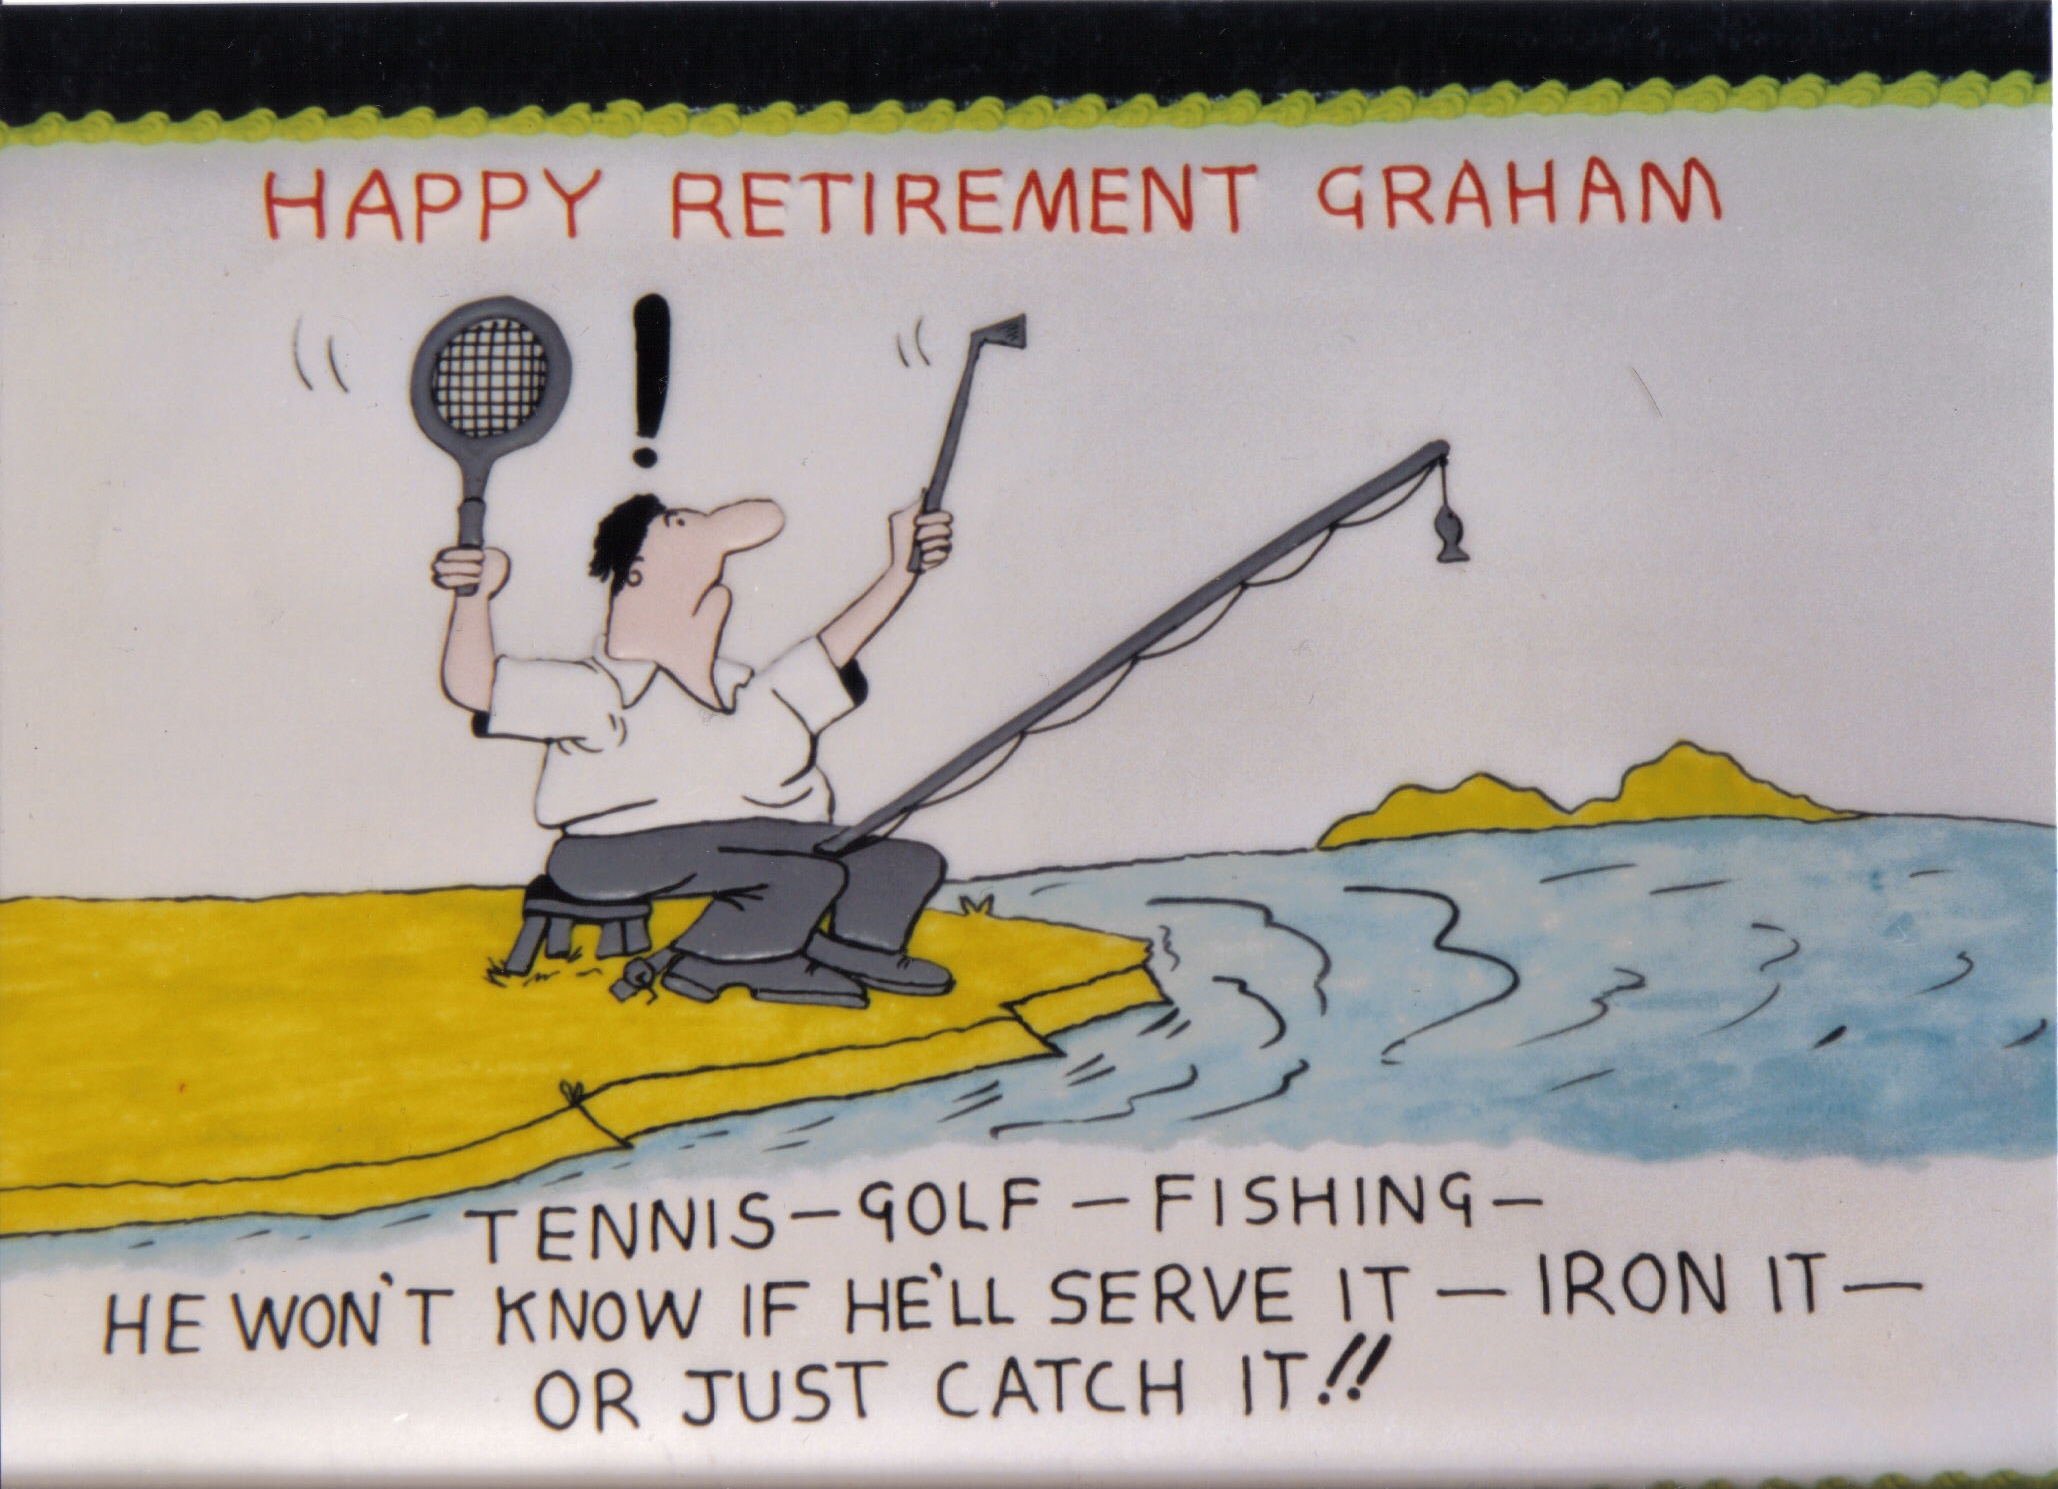 HAPPY RETIREMENT GRAHAM
!
TENNIS — GOLF — FISHING —
HE WON'T KNOW IF HE'LL SERVE IT — IRON IT —
OR JUST CATCH IT!!